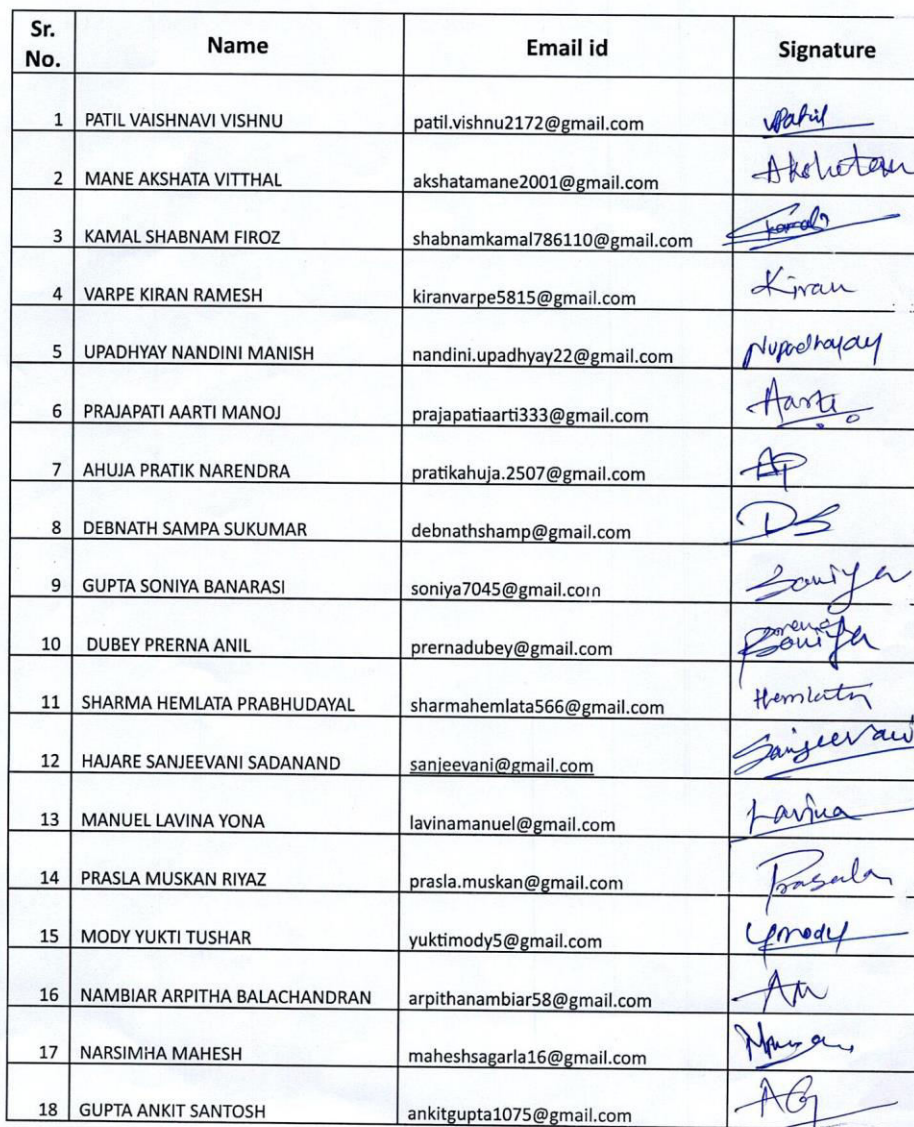 Sr. No. Name Email id Signature
1 PATIL VAISHNAVI VISHNU patil.vishnu2172@gmail.com vPatil
2 MANE AKSHATA VITTHAL akshatamane2001@gmail.com
3 KAMAL SHABNAM FIROZ shabnamkamal786110@gmail.com Kamal
4 VARPE KIRAN RAMESH kiranvarpe5815@gmail.com Kiran
5 UPADHYAY NANDINI MANISH nandini.upadhyay22@gmail.com Nupadhayay
6 PRAJAPATI AARTI MANOJ prajapatiaarti333@gmail.com Aarti
7 AHUJA PRATIK NARENDRA pratikahuja.2507@gmail.com AP
8 DEBNATH SAMPA SUKUMAR debnathshamp@gmail.com DS
9 GUPTA SONIYA BANARASI soniya7045@gmail.com Soniya
10 DUBEY PRERNA ANIL prernadubey@gmail.com
11 SHARMA HEMLATA PRABHUDAYAL sharmahemlata566@gmail.com Hemlata
12 HAJARE SANJEEVANI SADANAND sanjeevani@gmail.com Sanjeevani
13 MANUEL LAVINA YONA lavinamanuel@gmail.com Lavina
14 PRASLA MUSKAN RIYAZ prasla.muskan@gmail.com
15 MODY YUKTI TUSHAR yuktimody5@gmail.com Ymody
16 NAMBIAR ARPITHA BALACHANDRAN arpithanambiar58@gmail.com
17 NARSIMHA MAHESH maheshsagarla16@gmail.com
18 GUPTA ANKIT SANTOSH ankitgupta1075@gmail.com AG